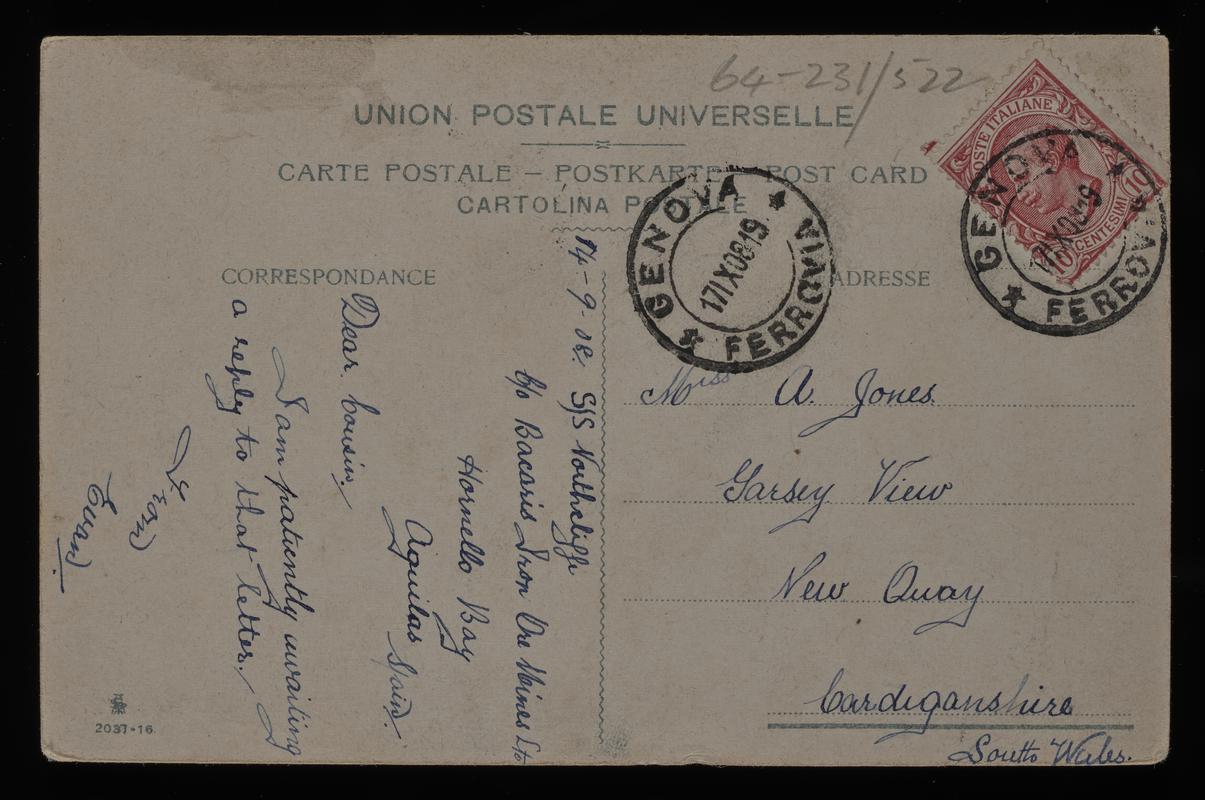 64-231/522
UNION POSTALE UNIVERSELLE
CARTE POSTALE – POSTKARTE – POST CARD
CARTOLINA POSTALE
CORRESPONDANCE
ADRESSE
POSTE ITALIANE
10 CENTESIMI 10
GENOVA
17 IX 08 19
FERROVIA
GENOVA
17 IX 08 19
FERROVIA
14-9-08. S/S Northcliffe
C/o Bacaris Iron Ore Mines Ltd
Hornello Bay
Aguilas Spain.
Dear Cousin,
I am patiently awaiting
a reply to that letter.
Evan
Miss A. Jones
Garsey View
New Quay
Cardiganshire
South Wales.
2037-16